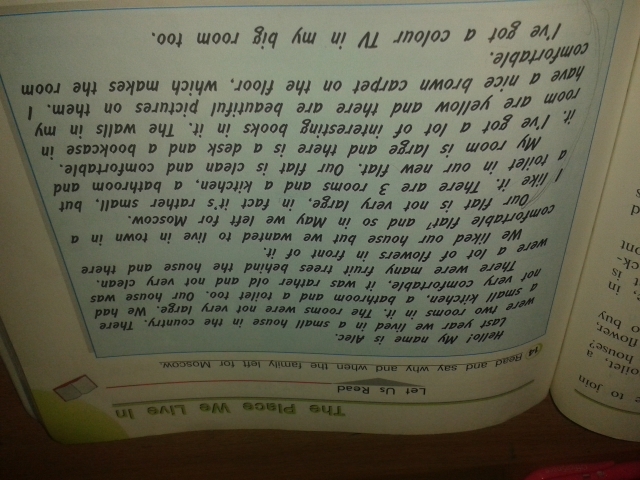 The Place We Live In
Let Us Read
14 Read and say why and when the family left for Moscow.
Hello! My name is Alec.
Last year we lived in a small house in the country. There
were two rooms in it. The rooms were not very large. We had
a small kitchen, a bathroom and a toilet too. Our house was
not very comfortable, it was rather old and not very clean.
There were many fruit trees behind the house and there
were a lot of flowers in front of it.
We liked our house but we wanted to live in town in a
comfortable flat¹ and so in May we left for Moscow.
Our flat is not very large, in fact it's rather small, but
I like it. There are 3 rooms and a kitchen, a bathroom and
a toilet in our new flat. Our flat is clean and comfortable.
My room is large and there is a desk and a bookcase in
it. I've got a lot of interesting books in it. The walls in my
room are yellow and there are beautiful pictures on them. I
have a nice brown carpet on the floor, which makes the room
comfortable.
I've got a colour TV in my big room too.
to join
toilet, a
house?
flower,
to buy
in
is
ck-
ont